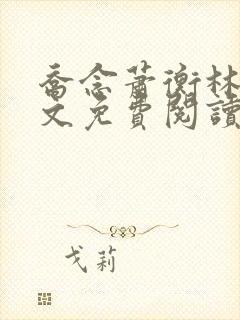 喬念蕭衡林
文免費閱讀
戈莉